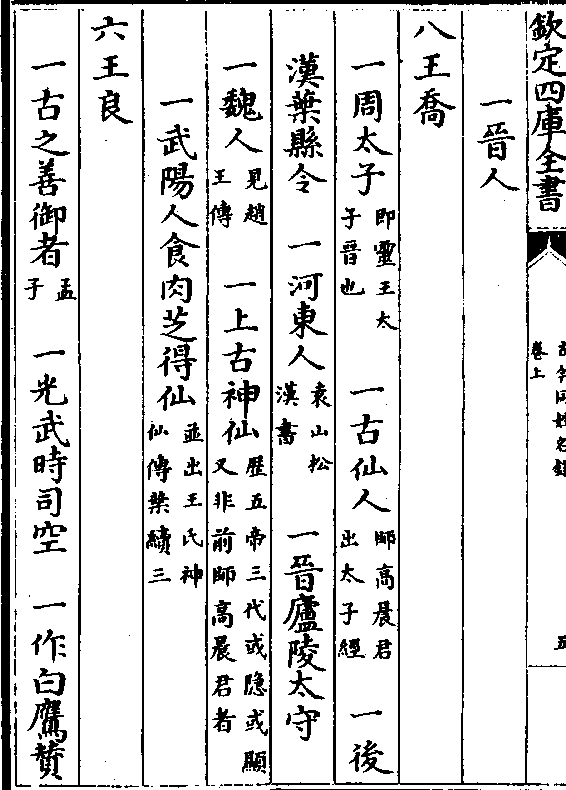 欽定四庫全書
古今同姓名錄
卷上
五
一晉人
八王喬
一周太子即靈王太子晉也 一古仙人師高晨君出太子經 一後
漢葉縣令 一河東人袁山松漢書 一晉廬陵太守
一魏人見趙王傳 一上古神仙歴五帝三代或隐或顯又非前師高晨君者
一武陽人食肉芝得仙並出王氏神仙傳葉續三
六王良
一古之善御者孟子 一光武時司空 一作白鷹賛